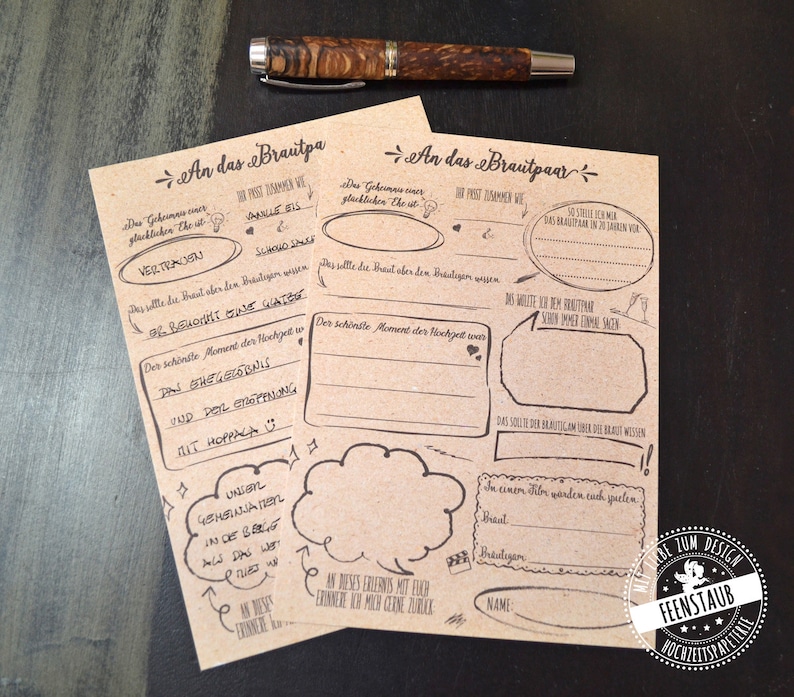 An das Brautpa
Das Geheimnis einer
glücklichen Ehe ist
VERTRAUEN
IHR PASST ZUSAMMEN WIE
VANILLE EIS
SCHOKO
Das sollte die Braut über den Bräutigam wissen
ER BEKOMMT EINE GLATZE
Der schönste Moment der Hochzeit war
DAS EHEGELÖBNIS
UND DER ERÖFFNUNG
MIT HOPPALA
UNSER
GEMEINSAMER
IN DIE BERGE
ALS DAS
AN DIESES
ERINNERE ICH
An das Brautpaar
Das Geheimnis einer
glücklichen Ehe ist
IHR PASST ZUSAMMEN WIE
&
SO STELLE ICH MIR
DAS BRAUTPAAR IN 20 JAHREN VOR:
Das sollte die Braut über den Bräutigam wissen
DAS WOLLTE ICH DEM BRAUTPAAR
SCHON IMMER EINMAL SAGEN:
Der schönste Moment der Hochzeit war
DAS SOLLTE DER BRÄUTIGAM ÜBER DIE BRAUT WISSEN
In einem Film würden euch spielen:
Braut
Bräutigam
AN DIESES ERLEBNIS MIT EUCH
ERINNERE ICH MICH GERNE ZURÜCK:
NAME:
MIT LIEBE ZUM DESIGN
FEENSTAUB
HOCHZEITSPAPETERIE